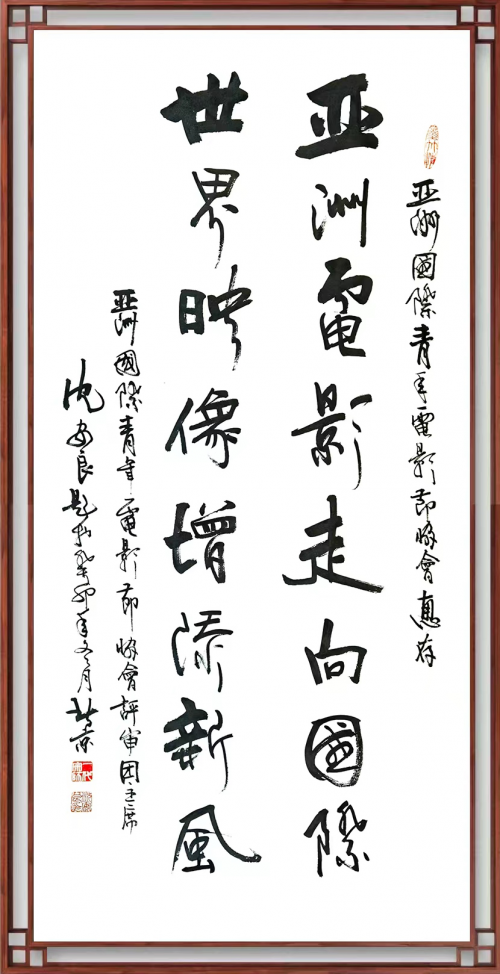 亞洲國際青年電影節協會惠存
亞洲電影走向國際
世界映像增添新風
亞洲國際青年電影節協會評審团主席
沈安良題於癸卯年冬月北京